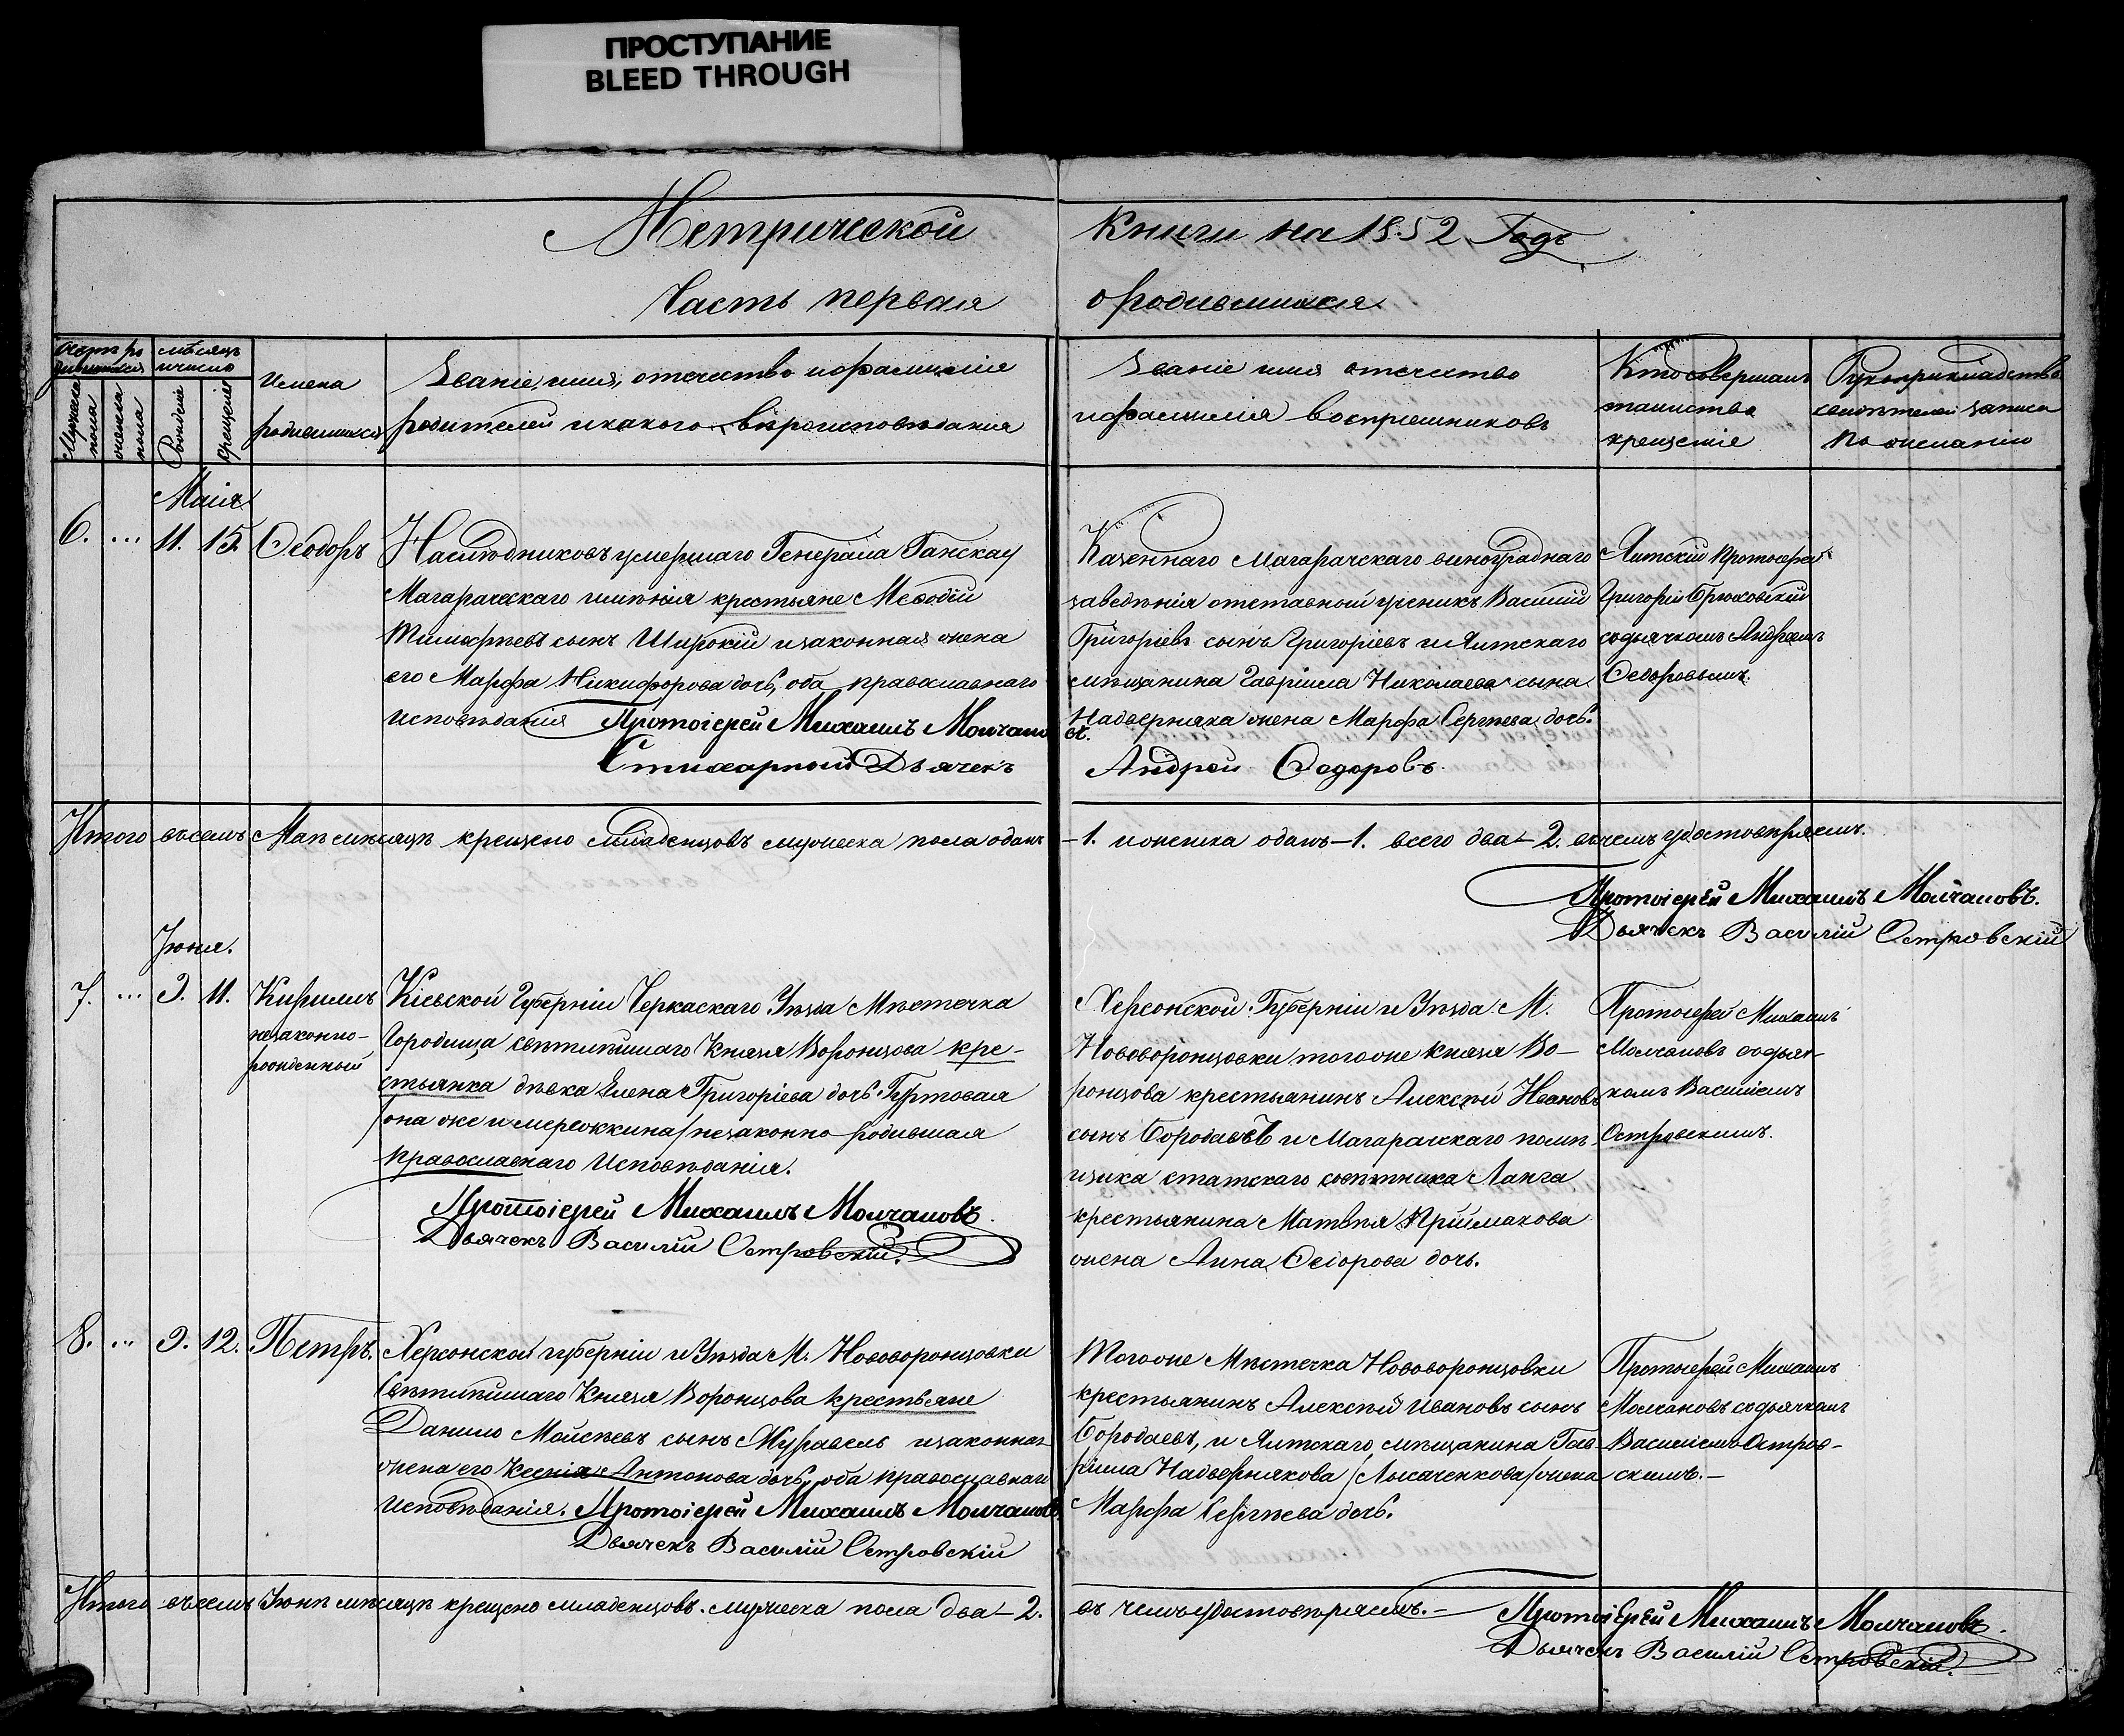 ПРОСТУПАНИЕ
BLEED THROUGH
Метрической
Часть первая
Счетъ ро
дившихся
мѣсяцъ
и число
Мужеска
пола
женска
пола
Рожденія
крещенія
Имена
родившихся
Званіе, имя, отечество и фамилія
родителей и какого вѣроисповѣданія
Маія
6. ... 11. 15. Ѳеодоръ
Наслѣдниковъ умершаго Генерала
Магарачскаго имѣнія крестьяне Меѳодій
Тимоѳѣевъ сынъ Широкій и законная жена
его Марфа Никифорова дочь, оба православнаго
исповѣданія Протоіерей Михаилъ Молчано
Стихарный Дьячекъ
Итого въ семъ Маѣ мѣсяцѣ крещено младенцовъ мужеска пола одинъ
Іюня.
7. ... 9. 11. Кириллъ
незаконно-
рожденный
Кіевской Губерніи Черкаскаго Уѣзда Мѣстечка
Городища свѣтлѣйшаго Князя Воронцова кре-
стьянка дѣвка Елена Григоріева дочь Буртовая
/она же и мережкина/ незаконно родившая
Православнаго Исповѣданія.
Протоіерей Михаилъ Молчановъ.
Дьячекъ Василій Островскій.
8. ... 9. 12. Петръ.
Херсонской губерніи и Уѣзда М. Нововоронцовки
Свѣтлѣйшаго Князя Воронцова крестьяне
Данило Мойсѣевъ сынъ Журавель и законная
жена его Ксенія Антонова дочь, оба православнаго
исповѣданія. Протоіерей Михаилъ Молчановъ
Дьячекъ Василій Островскій
Итого въ семъ Іюнѣ мѣсяцѣ крещено младенцовъ мужеска пола два – 2.
Книги на 1852 Годъ
о родившихся.
Званіе имя отечество
и фамилія воспріемниковъ
Кто совершалъ
таинство
крещеніе
Рукоприкладство
свидѣтелей записи
по желанію
Казеннаго Магарачскаго винограднаго
заведѣнія отставный ученикъ Василій
Григоріевъ сынъ Григоріевъ и Ялтскаго
мѣщанина Гавріила Николаева сына
Надверняка жена Марфа Сергѣева дочь.
въ.
Андрей Ѳедоровъ.
Ялтскій Протоіерей
Григорій Брюховскій
съ дьячкомъ Андреемъ
Ѳедоровымъ.
– 1. и женска одинъ – 1. всего два – 2. въ чемъ удостовѣряемъ.
Протоіерей Михаилъ Молчановъ.
Дьячекъ Василій Островскій
Херсонской Губерніи и Уѣзда М.
Нововоронцовки того же князя Во-
ронцова крестьянинъ Алексѣй Ивановъ
сынъ Бородаевъ и Магарачскаго помѣ-
щика статскаго совѣтника Ланга
крестьянина Матвѣя Приймакова
жена Анна Ѳедорова дочь.
Протоіерей Михаилъ
Молчановъ съ дьяч-
комъ Василіемъ
Островскимъ.
Того же Мѣстечка Нововоронцовки
крестьянинъ Алексѣй Ивановъ сынъ
Бородаевъ, и Ялтскаго мѣщанина Гав-
ріила Надвернякова /Лысаченкова/ жена
Марфа Сергѣева дочь.
Протоіерей Михаилъ
Молчановъ съ дьячкомъ
Василіемъ Остров-
скимъ. –
въ чемъ удостовѣряемъ. – Протоіерей Михаилъ Молчановъ.
Дьячекъ Василій Островскій.